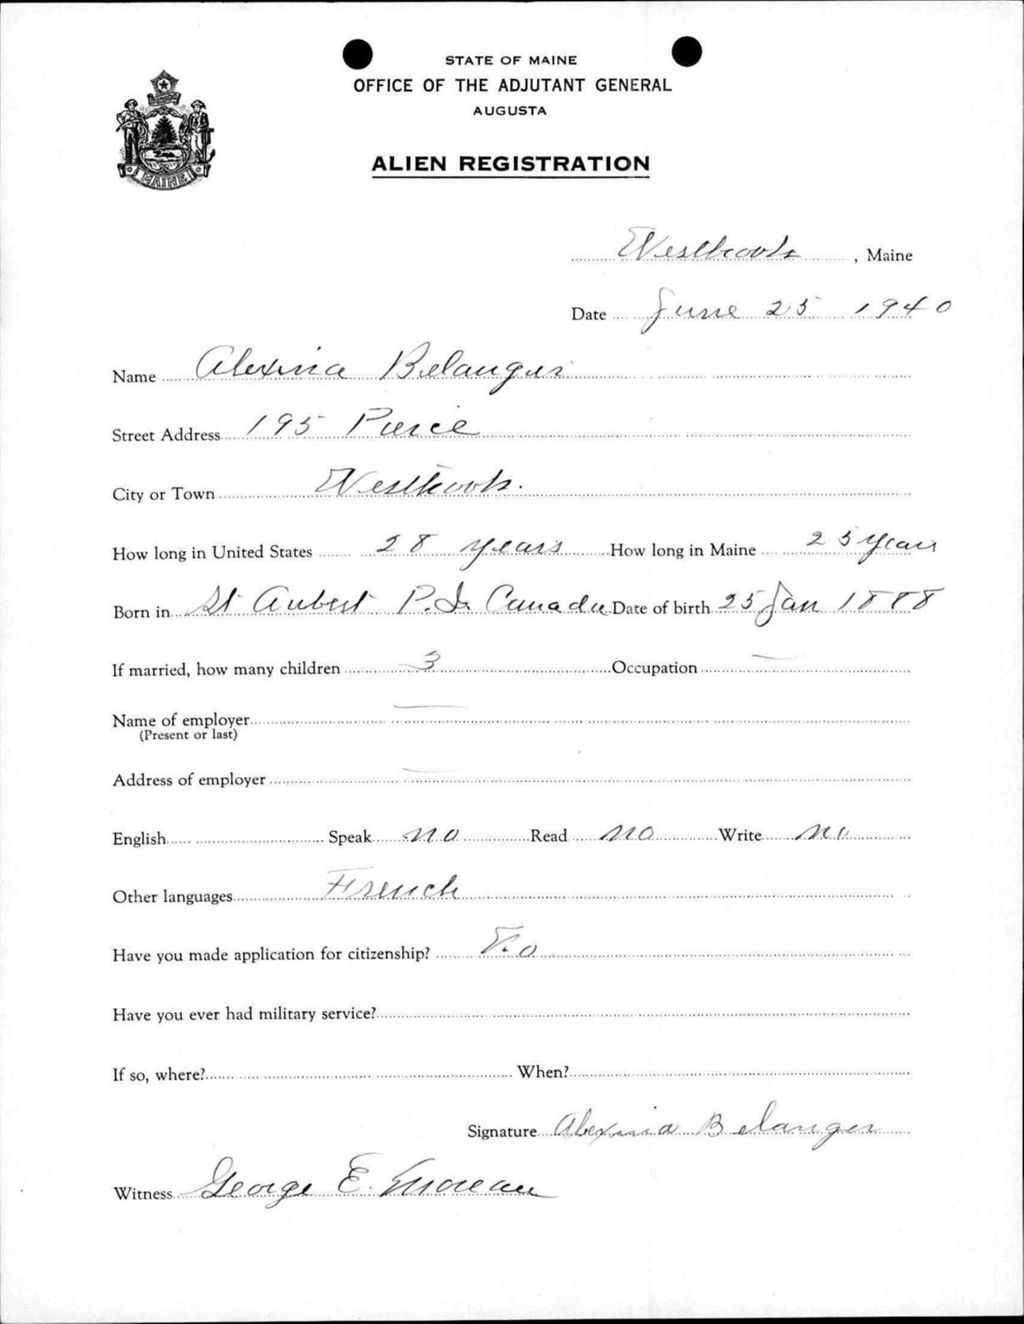 STATE OF MAINE
OFFICE OF THE ADJUTANT GENERAL
AUGUSTA
ALIEN REGISTRATION
MAINE
Westbrook, Maine
Date June 25 1940
Name Alexina Belanger
Street Address 195 Pierce
City or Town Westbrook.
How long in United States 28 years How long in Maine 25 years
Born in St Aubert P.Q. Canada Date of birth 25 Jan 1888
If married, how many children 3 Occupation —
Name of employer —
(Present or last)
Address of employer —
English Speak no Read no Write no
Other languages French
Have you made application for citizenship? No
Have you ever had military service?
If so, where? When?
Signature Alexina Belanger
Witness George E. Moreau